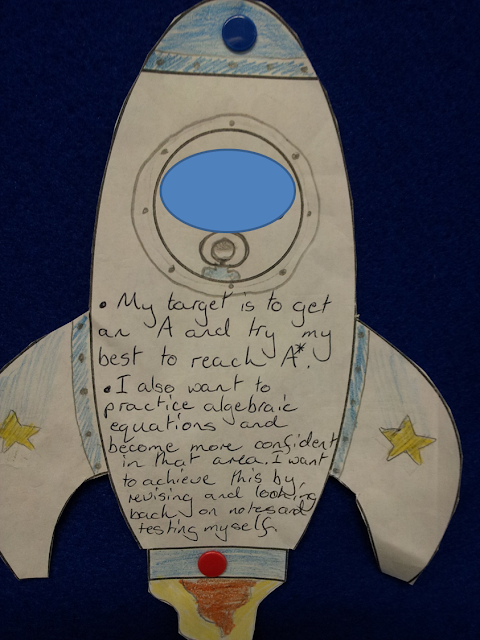 • My target is to get
an A and try my
best to reach A*.
• I also want to
practice algebraic
equations and
become more confident
in that area. I want
to achieve this by,
revising and looking
back on notes and
testing myself.